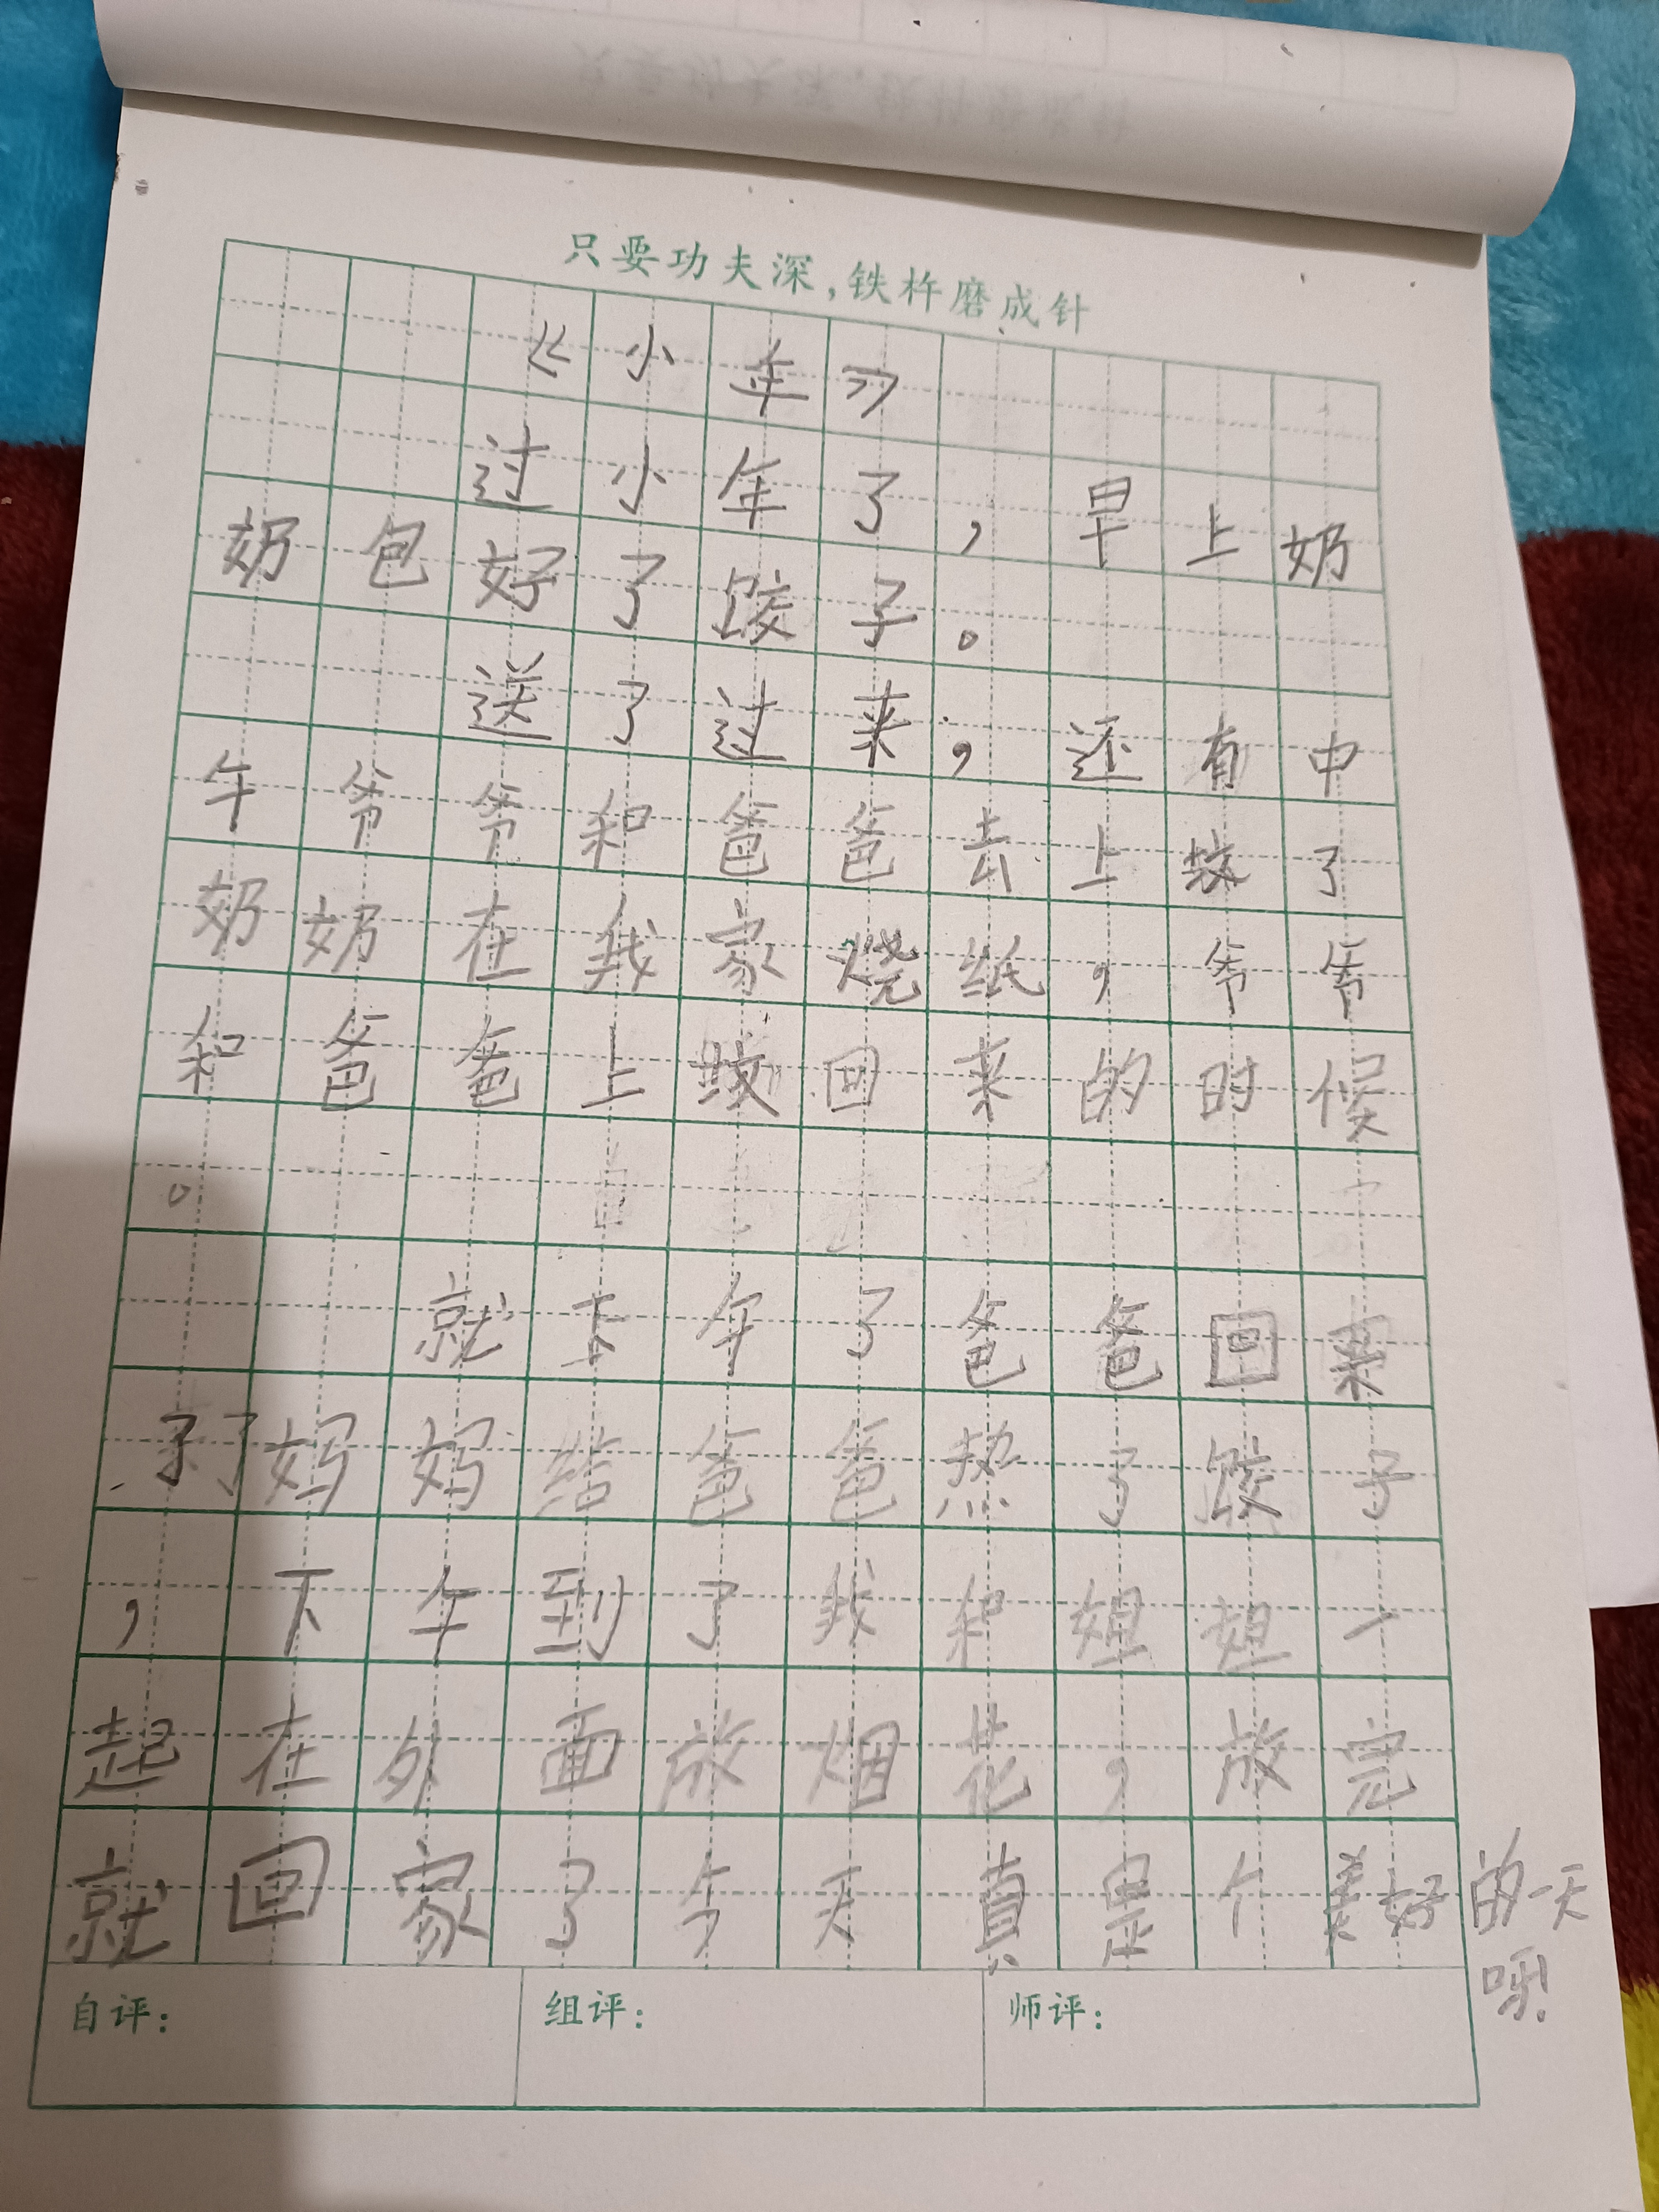 只要功夫深，铁杵磨成针
《小年》
过小年了，早上奶
奶包好了饺子。
送了过来，还有中
午爷爷和爸爸去上坟了
奶奶在我家烧纸，爷爷
和爸爸上坟回来的时候
。
就下午了爸爸回来
了了妈妈给爸爸热了饺子
，下午到了我和姐姐一
起在外面放烟花，放完
就回家了今天真是个美好的一天
呀！
自评： 组评： 师评：